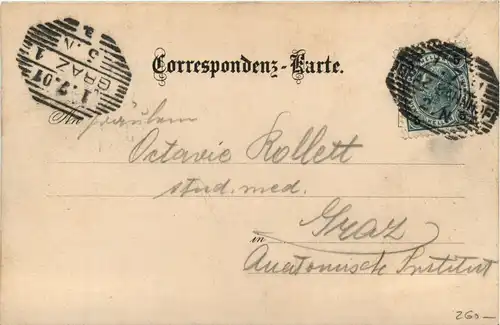 Correspondenz-Karte.
GRAZ 1
1.7.01
5.N
An Fräulein
Octavie Rollett
stud. med.
Graz
in Anatomisches Institut
260—